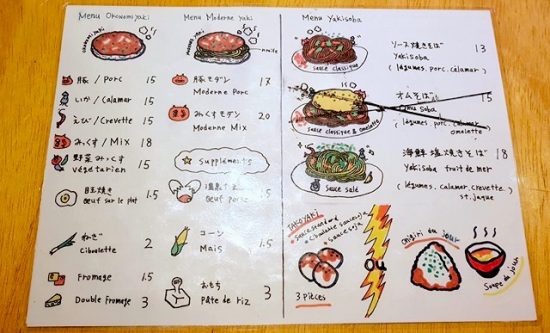 Menu Okonomiyaki
okonomiyaki
豚 / Porc 15
いか / Calamar 15
えび / Crevette 15
みっくす / Mix 18
野菜みっくす 15
végétarien
目玉焼き 1.5
Œuf sur le plat
ねぎ 2
Ciboulette
Fromage 1.5
Double fromage 3
Menu Moderne yaki
豚モダン 17
Moderne Porc
みっくすモダン 20
Moderne Mix
Suppléments
温泉
Œuf 1.5
コーン 1.5
Maïs
おもち 3
Pâte de riz
Menu Yakisoba
sauce classique
ソース焼きそば 13
Yakisoba
(légumes, porc, calamar)
sauce classique & omelette
オムそば 15
Soba
(légumes, porc, calamar
omelette)
sauce salé
海鮮塩焼きそば 18
Yakisoba fruit de mer
(légumes, calamar, crevette
st. jaque)
TAKOYAKI
Sauce standard
Ciboulette sauce soja
Sauce soja
3 pièces
Ou
Onigiri du jour
Soupe du jour